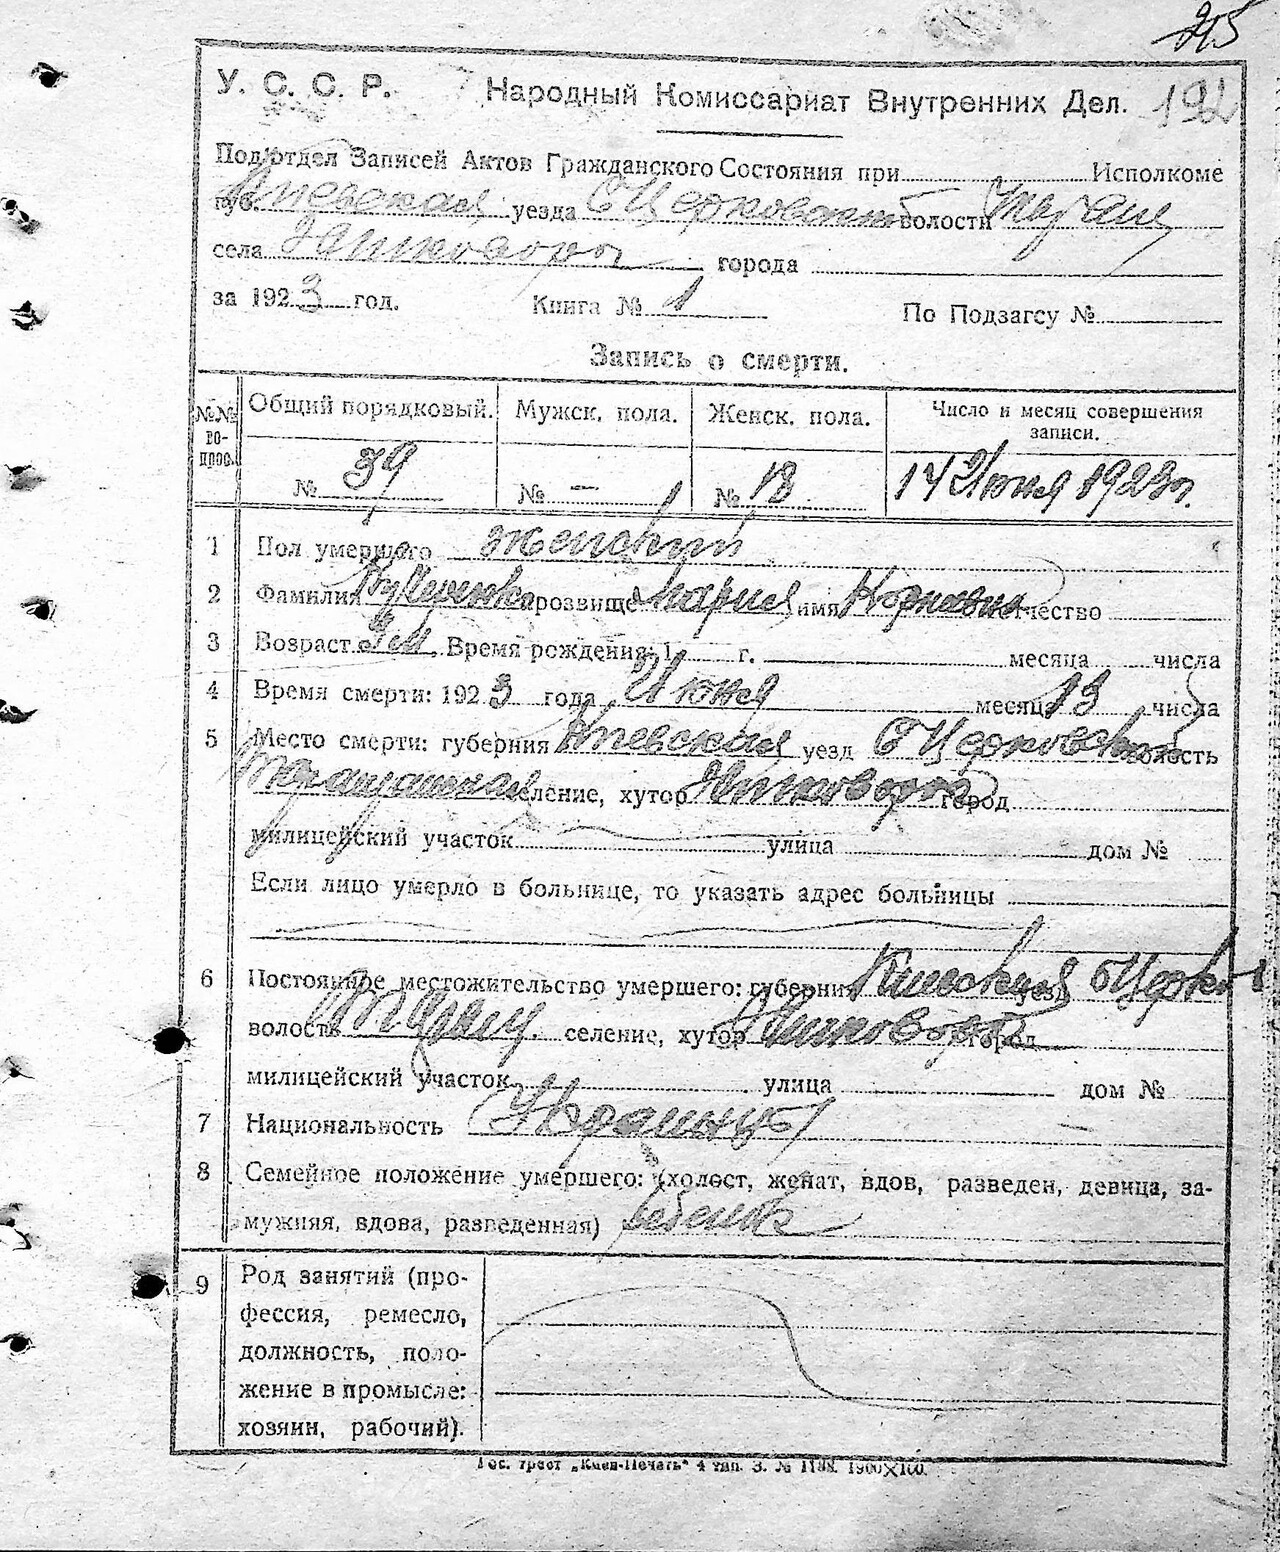 215
У. С. С. Р. Народный Комиссариат Внутренних Дел. 192
Подотдел Записей Актов Гражданского Состояния при Исполкоме
губ. Киевская уезда БЦерковского волости
села города
за 1923 год. Книга № 1 По Подзагсу №
Запись о смерти.
№№ вопрос. Общий порядковый. Мужск. пола. Женск. пола. Число и месяц совершения записи.
№ 39 № — № 18 14 Июня 1923 г.
1 Пол умершего женский
2 Фамилия Кучеренко прозвище Мария имя отчество
3 Возраст Время рождения: 1 г. месяца числа
4 Время смерти: 1923 года Июня месяца 13 числа
5 Место смерти: губерния Киевская уезд БЦерковский волость
селение, хутор город
милицейский участок улица дом №
Если лицо умерло в больнице, то указать адрес больницы
6 Постоянное местожительство умершего: губерния Киевская уезд БЦерков
волость селение, хутор город
милицейский участок улица дом №
7 Национальность
8 Семейное положение умершего: (холост, женат, вдов, разведен, девица, за-
мужняя, вдова, разведенная) ребенок
9 Род занятий (про-
фессия, ремесло,
должность, поло-
жение в промысле:
хозяин, рабочий).
Гос. трест „Киев-Печать" 4 тип. З. № 1900×100.